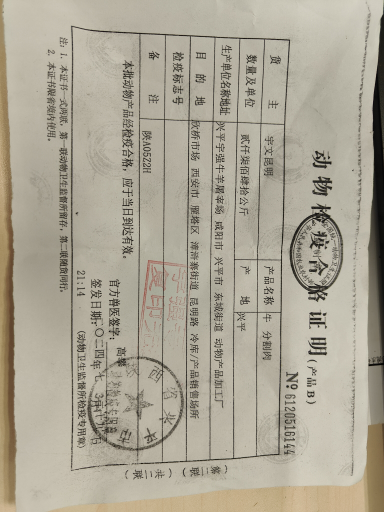 动物检疫合格证明(产品B)
№ 6120516144
货 主 宇文昆明 产品名称 牛 分割肉
数量及单位 贰仟柒佰肆拾公斤 产 地 兴平
生产单位名称地址 兴平宇强牛羊屠宰场 咸阳市 兴平市 东城街道 动物产品加工厂
目 的 地 欣桥市场 西安市 雁塔区 漳浒寨街道 昆明路 冷库/产品销售场所
检疫标志号
备 注 陕A05Z2H
本批动物产品经检疫合格,应于当日到达有效。
官方兽医签字:
签发日期:二〇二四年
21:14
(动物卫生监督所检疫专用章)
注:1. 本证书一式两联,第一联动物卫生监督所留存,第二联随货同行。
2. 本证书限省境内使用。
第二联
(共二联)
复印